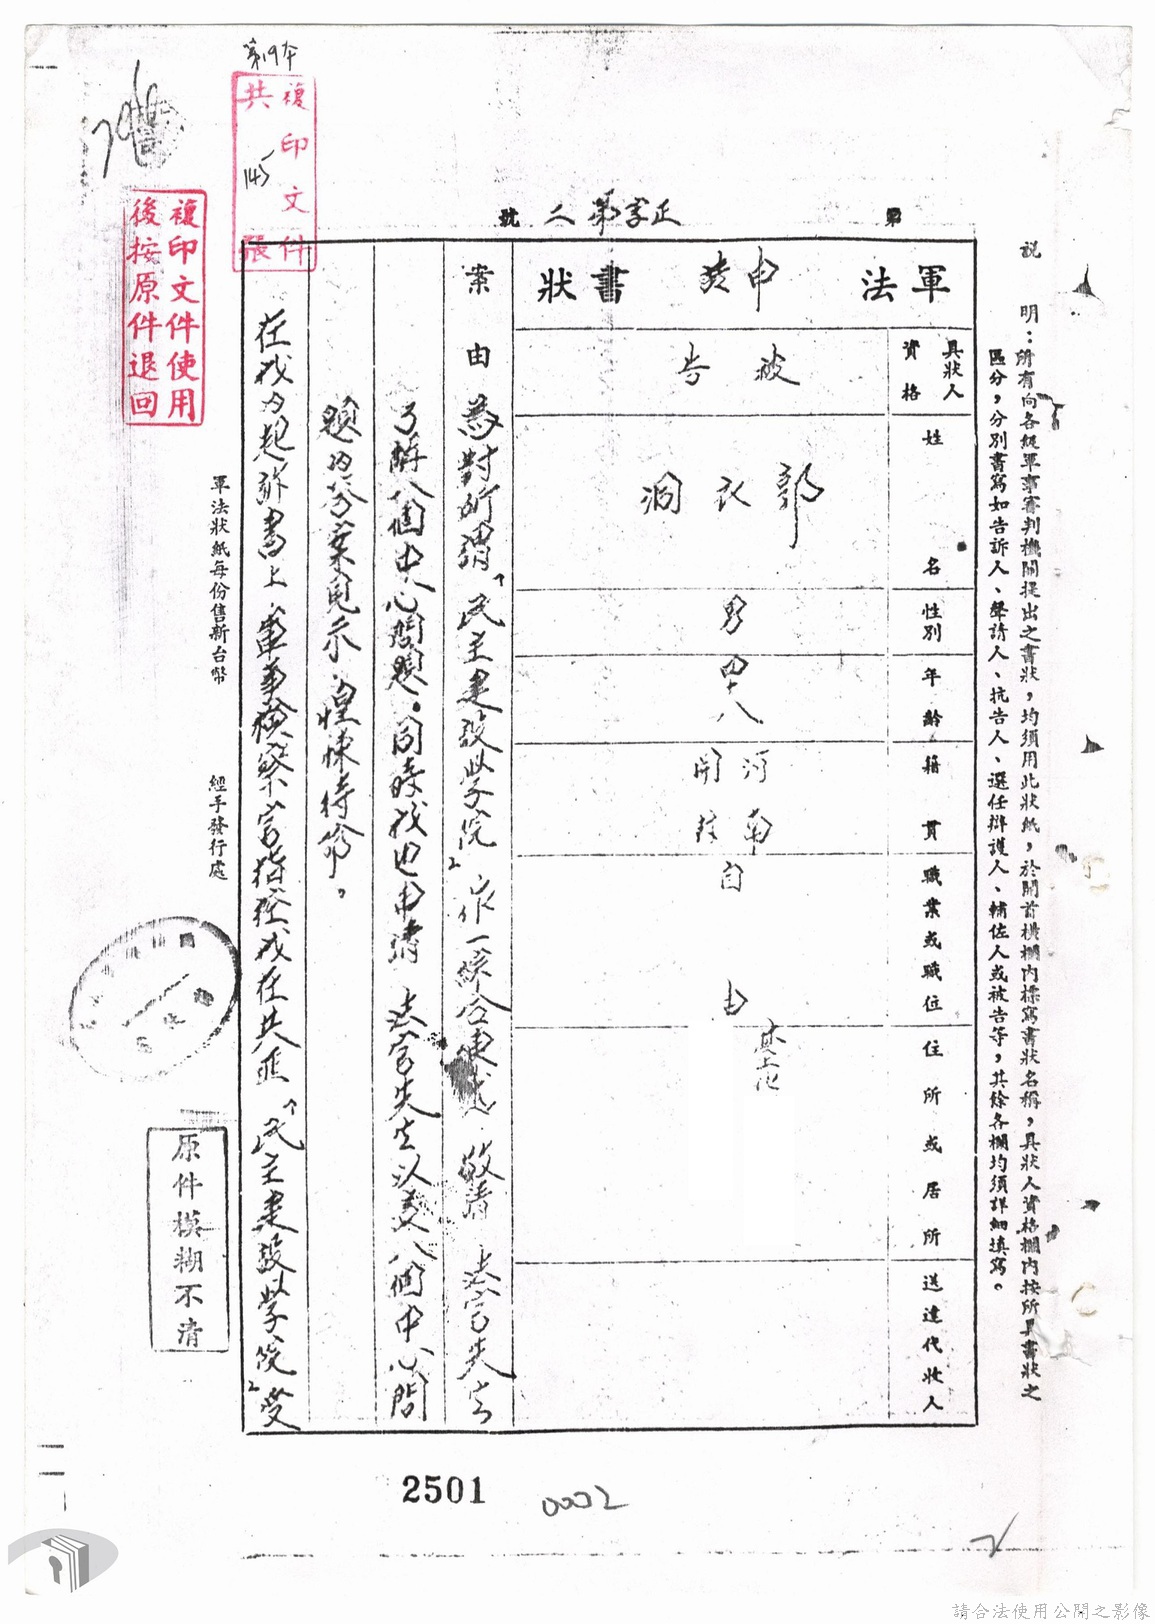 說　明：所有向各級軍事審判機關提出之書狀，均須用此狀紙，於開首橫欄內標寫書狀名稱，具狀人資格欄內按所具書狀之
區分，分別書寫如告訴人、聲請人、抗告人、選任辯護人、輔佐人或被告等，其餘各欄均須詳細填寫。
第 正字第二 號
軍法 申 書狀
具狀人資格 被告
姓名 郭衣洞
性別 男
年齡 四十八
籍貫 河南開封
職業或職位 自由
住所或居所 台北
送達代收人
案由 為對所謂「民主建設學院」作一綜合陳述，敬請 法官先生
了解八個中心問題。同時我也申請 法官先生以美八個中心問
題的答案見示，惶悚待命。
在我的起訴書上，軍事檢察官指控我在共匪「民主建設學院」受
軍法狀紙每份售新台幣
經手發行處
複印文件
共 145 張
第19本
複印文件使用
後按原件退回
原件模糊不清
2501
0002
請合法使用公開之影像